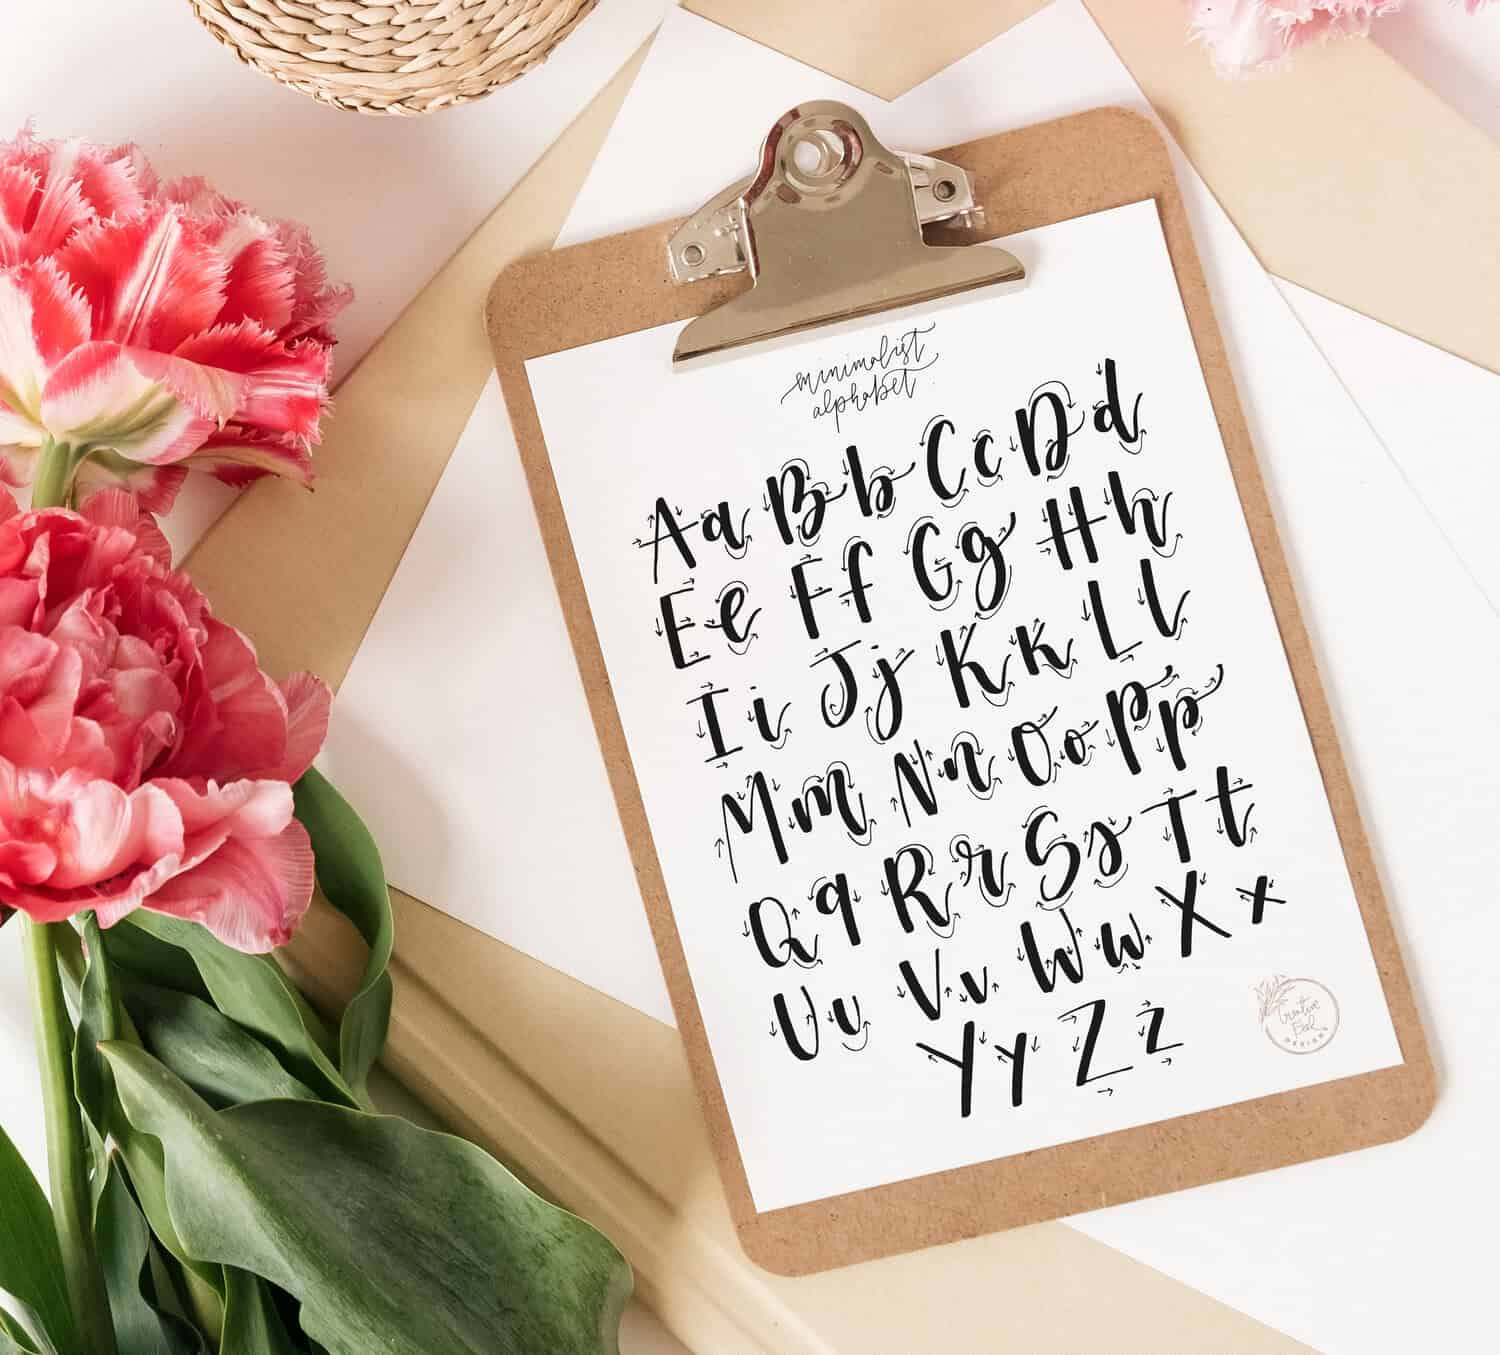 minimalist
alphabet
Aa Bb Cc Dd
Ee Ff Gg Hh
Ii Jj Kk Ll
Mm Nn Oo Pp
Qq Rr Ss Tt
Uu Vv Ww Xx
Yy Zz
Creative
DESIGN